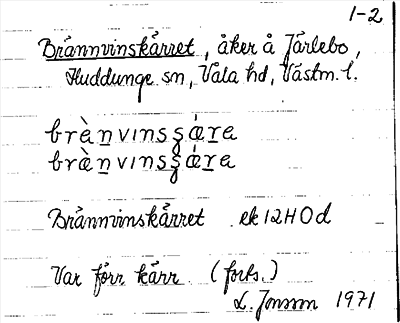 1-2
Brännvinskärret, åker å Järlebo,
Huddunge sn, Vala hd, Västm. l.
brὰnvinsʂǽra
brænvinsʂǽra
Brännvinskärret ek 12H0d
Var förr kärr (forks.)
L. Jonsson 1971